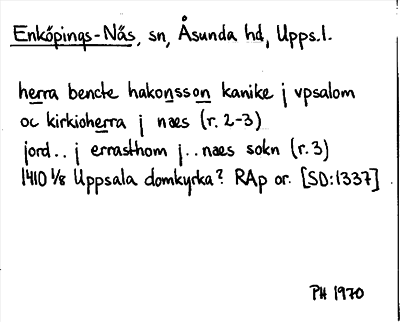 Enköpings-Näs, sn, Åsunda hd, Upps.l.
herra bencte hakonsson kanike j vpsalom
oc kirkioherra j naes (r. 2-3)
jord.. j errasthom j.. naes sokn (r. 3)
1410 1/8 Uppsala domkyrka? RAp or. [SD:1337]
PH 1970